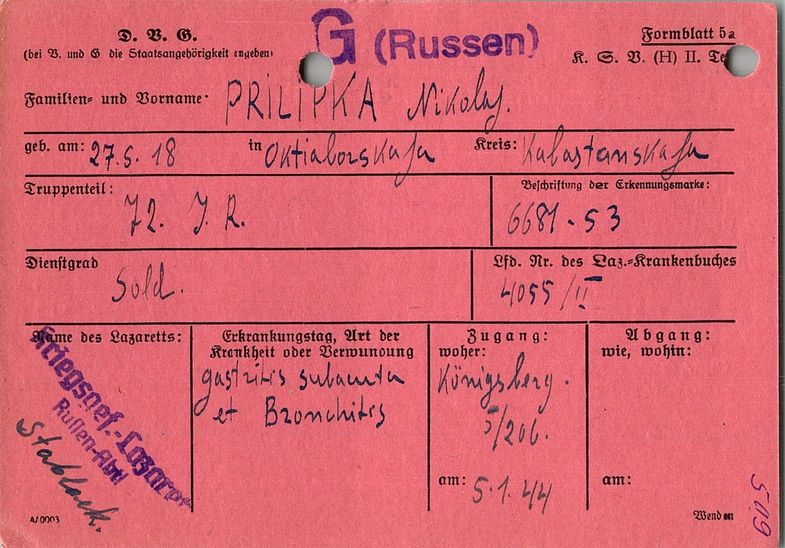 D. V. G.
(bei V. und G die Staatsangehörigkeit angeben)
G (Russen)
Formblatt 5a
K. S. V. (H) II. Te
Familien- und Vorname: PRILIPKA Nikolaj.
geb. am: 27.5.18 in Oktiaborskaja Kreis: Kabastanskaja
Truppenteil: 72. J. R.
Beschriftung der Erkennungsmarke: 6681-53
Dienstgrad Sold.
Lfd. Nr. des Laz.-Krankenbuches 4055/II
Name des Lazaretts:
Kriegsgef.-Lazare
Russen-Abtl
Stablack.
Erkrankungstag, Art der
Krankheit oder Verwundung
gastritis subacuta
et Bronchitis
Zugang:
woher:
Königsberg.
5/206.
am: 5.1.44
Abgang:
wie, wohin:
am:
A/0003
Wenden
509